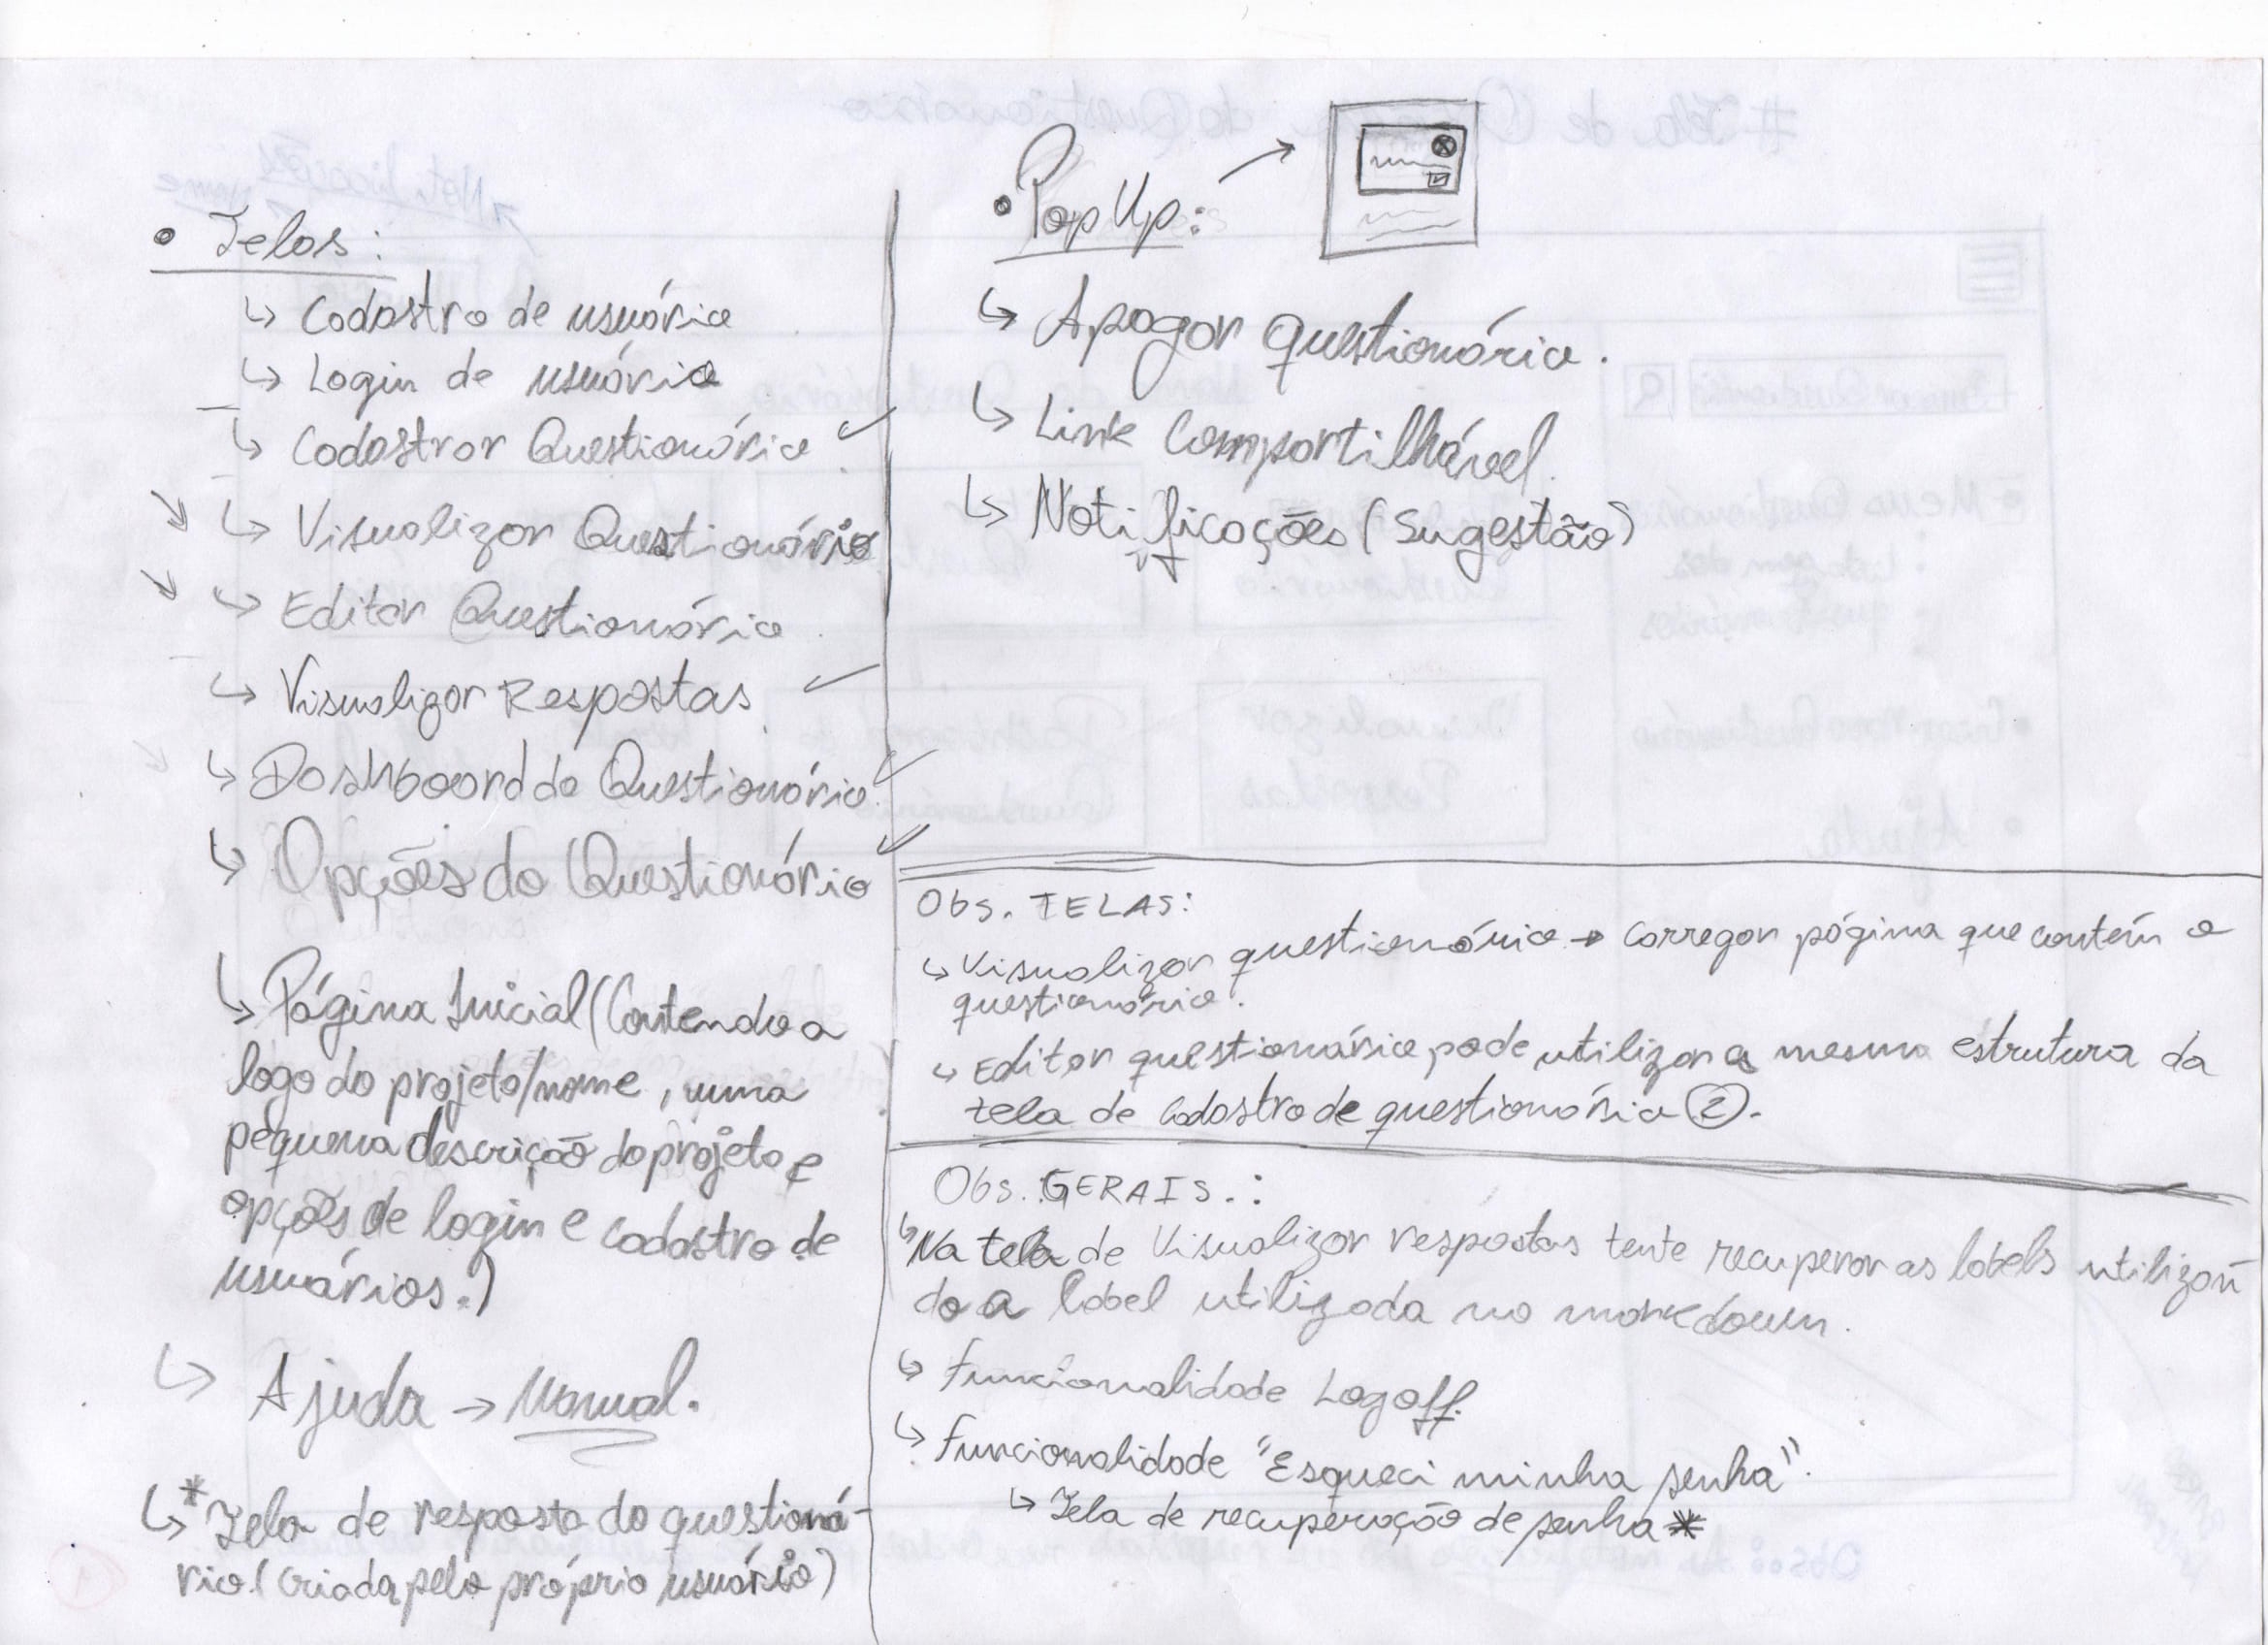 • Telas:
↳ Cadastro de usuário
↳ Login de usuário
↳ Cadastrar Questionário
↳ Visualizar Questionário
↳ Editar Questionário
↳ Visualizar Respostas
↳ Dashboard do Questionário
↳ Opções do Questionário
↳ Página Inicial (Contendo a
logo do projeto/nome, uma
pequena descrição do projeto e
opções de login e cadastro de
usuários.)
↳ Ajuda → Manual.
↳ *Tela de resposta do questioná-
rio. (criada pelo próprio usuário)
• Pop Up: →
↳ Apagar questionário.
↳ Link Compartilhável.
↳ Notificações (Sugestão)
Obs. TELAS:
↳ Visualizar questionário → Carregar página que contém o
questionário.
↳ Editar questionário pode utilizar a mesma estrutura da
tela de cadastro de questionário ②.
Obs. GERAIS.:
↳ Na tela de Visualizar respostas tente recuperar as labels utilizan
do a label utilizada no markdown.
↳ Funcionalidade Logoff.
↳ Funcionalidade "Esqueci minha senha".
↳ Tela de recuperação de senha *